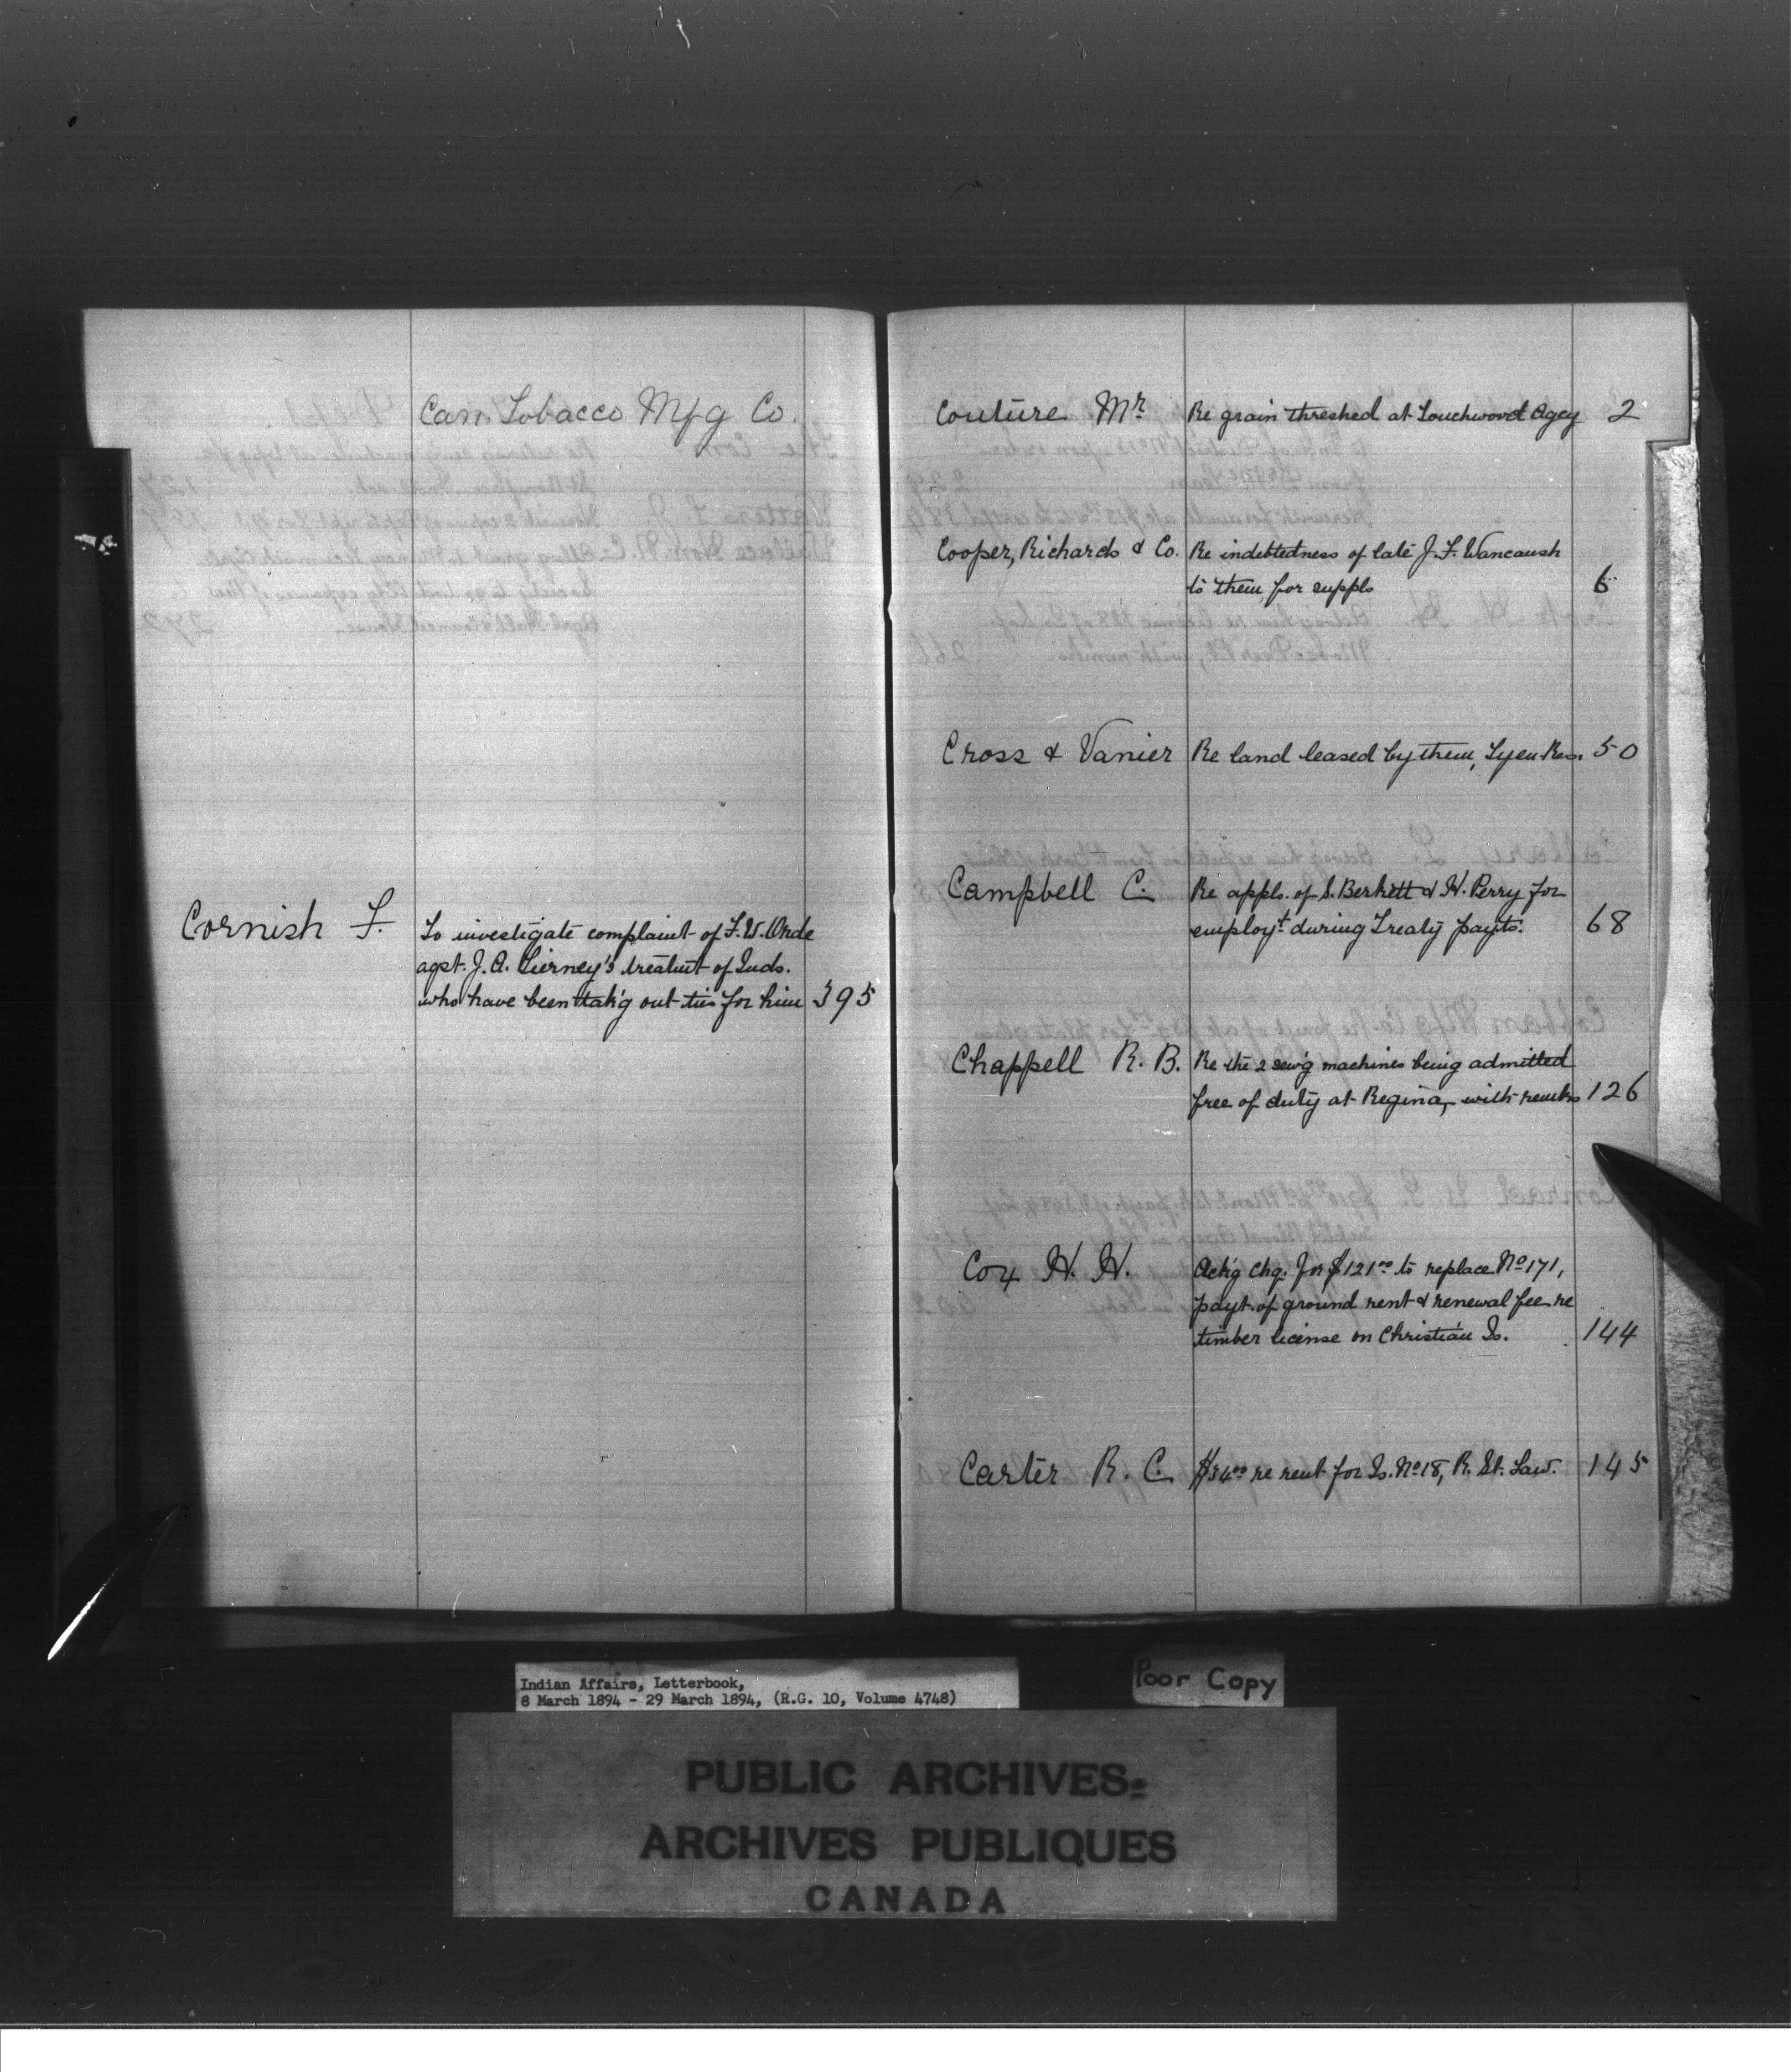 Can. Tobacco Mfg Co.
Cornish F.
To investigate complaint of F. W. Orde
agst. J. A. Tierney's treatmt of Inds.
who have been tak'g out ties for him 395
Couture Mr Re grain threshed at Touchwood Agcy 2
Cooper, Richards & Co. Re indebtedness of late J. F. Wancaush
to them for suppls 6
Cross & Vanier Re land leased by them, Res. 50
Campbell C. Re appls. of S. Berkett & H. Perry for
employt during Treaty payts. 68
Chappell R. B. Re the 2 sew'g machines being admitted
free of duty at Regina, with remks 126
Cox H. H. Ack'g chq. for $121.00 to replace No 171,
payt. of ground rent & renewal fee re
timber license on Christian Is. 144
Carter R. C. $34.00 re rent for Is. No 18, R. St. Law. 145
Indian Affairs, Letterbook,
8 March 1894 - 29 March 1894, (R.G. 10, Volume 4748)
Poor Copy
PUBLIC ARCHIVES
ARCHIVES PUBLIQUES
CANADA